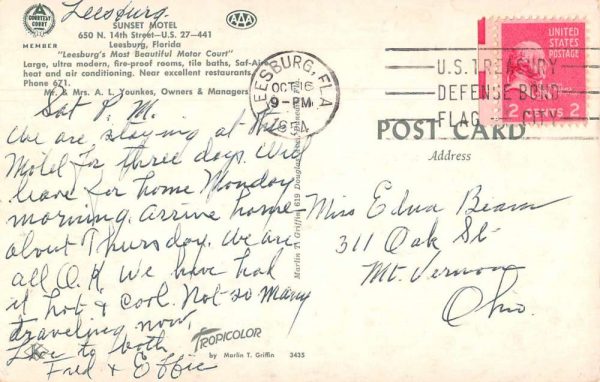 Leesburg.
A
COURTESY COURT
MEMBER
AAA
SUNSET MOTEL
650 N. 14th Street—U.S. 27—441
Leesburg, Florida
"Leesburg's Most Beautiful Motor Court"
Large, ultra modern, fire-proof rooms, tile baths, Saf-Aire
heat and air conditioning. Near excellent restaurants.
Phone 671.
Mr. & Mrs. A. L. Younkes, Owners & Managers
Sat P. M.
We are staying at this
Motel for three days. Will
leave for home Monday
morning. arrive home
about Thursday. We are
all O. K. We have had
it hot & cool. Not so many
traveling now.
Love to both
Fred & Effie
TROPICOLOR
by Marlin T. Griffin 3435
Marlin T. Griffin 619 Douglas
LEESBURG, FLA
OCT 16
9-PM
U.S. TREASURY
DEFENSE BOND
FLAG CITY
UNITED
STATES
POSTAGE
2 2
POST CARD
Address
Miss Edna Beam
311 Oak St-
Mt. Vernon
Ohio.